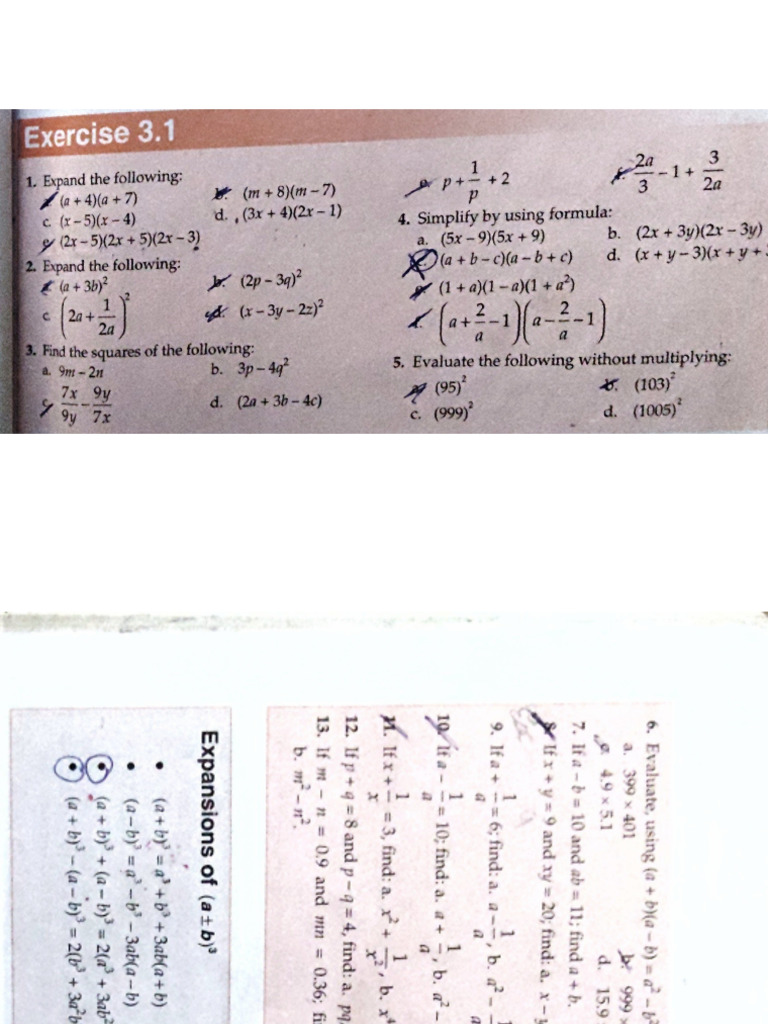 Exercise 3.1
1. Expand the following:
a. (a + 4)(a + 7)
b. (m + 8)(m – 7)
c. (x – 5)(x – 4)
d. (3x + 4)(2x – 1)
e. (2x – 5)(2x + 5)(2x – 3)
2. Expand the following:
a. (a + 3b)²
b. (2p – 3q)²
c. (2a + 1/2a)²
d. (x – 3y – 2z)²
3. Find the squares of the following:
a. 9m – 2n
b. 3p – 4q²
c. 7x/9y – 9y/7x
d. (2a + 3b – 4c)
e. p + 1/p + 2
f. 2a/3 – 1 + 3/2a
4. Simplify by using formula:
a. (5x – 9)(5x + 9)
b. (2x + 3y)(2x – 3y)
c. (a + b – c)(a – b + c)
d. (x + y – 3)(x + y +
e. (1 + a)(1 – a)(1 + a²)
f. (a + 2/a – 1)(a – 2/a – 1)
5. Evaluate the following without multiplying:
a. (95)²
b. (103)²
c. (999)²
d. (1005)²
6. Evaluate, using (a + b)(a – b) = a² – b²
a. 399 × 401
b. 999 ×
c. 4.9 × 5.1
d. 15.9
7. If a – b = 10 and ab = 11; find a + b.
8. If x + y = 9 and xy = 20; find: a. x – y
9. If a + 1/a = 6; find: a. a – 1/a, b. a² –
10. If a – 1/a = 10; find: a. a + 1/a, b. a² –
11. If x + 1/x = 3, find: a. x² + 1/x², b. x⁴
12. If p + q = 8 and p – q = 4, find: a. pq,
13. If m – n = 0.9 and mn = 0.36; fi
b. m² – n².
Expansions of (a ± b)³
• (a + b)³ = a³ + b³ + 3ab(a + b)
• (a – b)³ = a³ – b³ – 3ab(a – b)
• (a + b)³ + (a – b)³ = 2(a³ + 3ab²
• (a + b)³ – (a – b)³ = 2(b³ + 3a²b